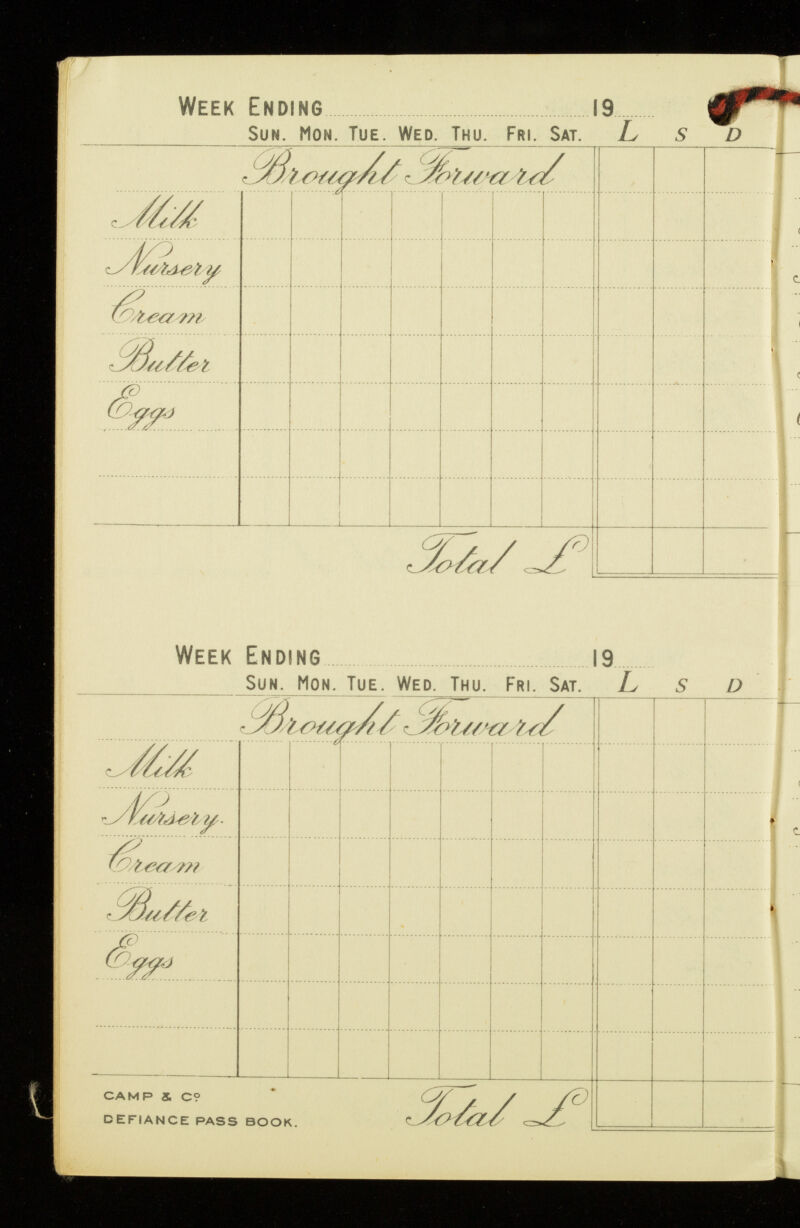 WEEK ENDING 19
SUN. MON. TUE. WED. THU. FRI. SAT. L S D
Brought Forward
Milk
Nursery
Cream
Butter
Eggs
Total £
WEEK ENDING 19
SUN. MON. TUE. WED. THU. FRI. SAT. L S D
Brought Forward
Milk
Nursery.
Cream
Butter
Eggs
Total £
CAMP & Cº
DEFIANCE PASS BOOK.